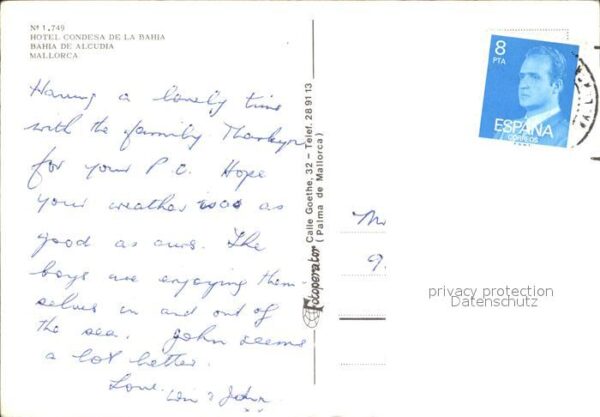 Nº 1.749
HOTEL CONDESA DE LA BAHIA
BAHIA DE ALCUDIA
MALLORCA
Having a lovely time
with the family Thankyou
for your P.C. Hope
your weather is as
good as ours. The
boys are enjoying them-
selves in and out of
the sea. John seems
a lot better.
Love. Win & John.
Fotoperator Calle Goethe, 32 - Telef. 28 91 13
(Palma de Mallorca)
8
PTA
ESPAÑA
CORREOS
privacy protection
Datenschutz